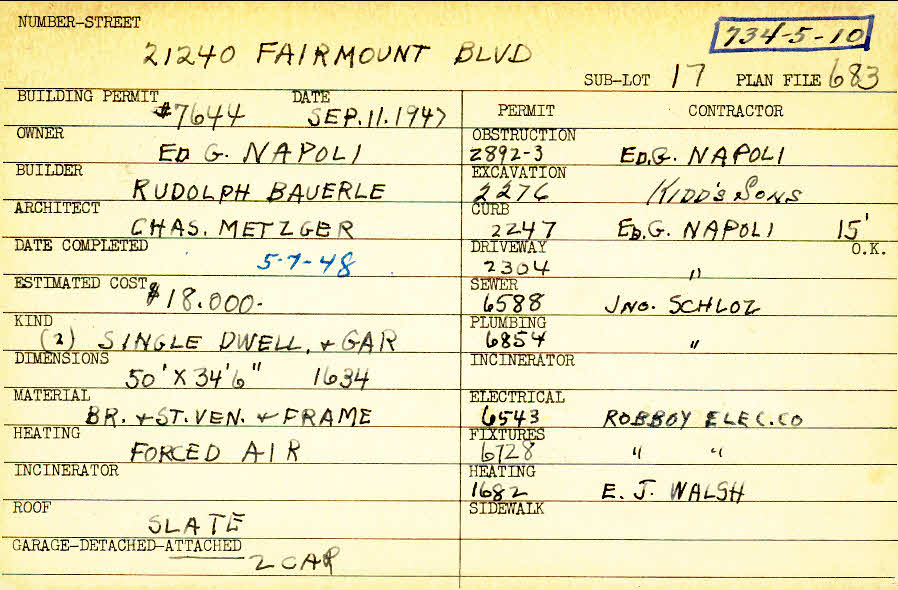 NUMBER-STREET
21240 FAIRMOUNT BLVD
734-5-10
SUB-LOT 17 PLAN FILE 683
BUILDING PERMIT DATE
#7644 SEP.11.1947
OWNER
ED G. NAPOLI
BUILDER
RUDOLPH BAUERLE
ARCHITECT
CHAS. METZGER
DATE COMPLETED
5-7-48
ESTIMATED COST
$18.000-
KIND
(2) SINGLE DWELL. + GAR
DIMENSIONS
50' X 34'6" 1634
MATERIAL
BR. + ST. VEN. + FRAME
HEATING
FORCED AIR
INCINERATOR
ROOF
SLATE
GARAGE-DETACHED-ATTACHED
2 CAR
PERMIT CONTRACTOR
OBSTRUCTION
2892-3 ED.G. NAPOLI
EXCAVATION
2276 KIDD'S SONS
CURB
2247 ED.G. NAPOLI 15'
O.K.
DRIVEWAY
2304 "
SEWER
6588 JNO. SCHLOZ
PLUMBING
6854 "
INCINERATOR
ELECTRICAL
6543 ROBBOY ELEC.CO
FIXTURES
6728 " "
HEATING
1682 E. J. WALSH
SIDEWALK